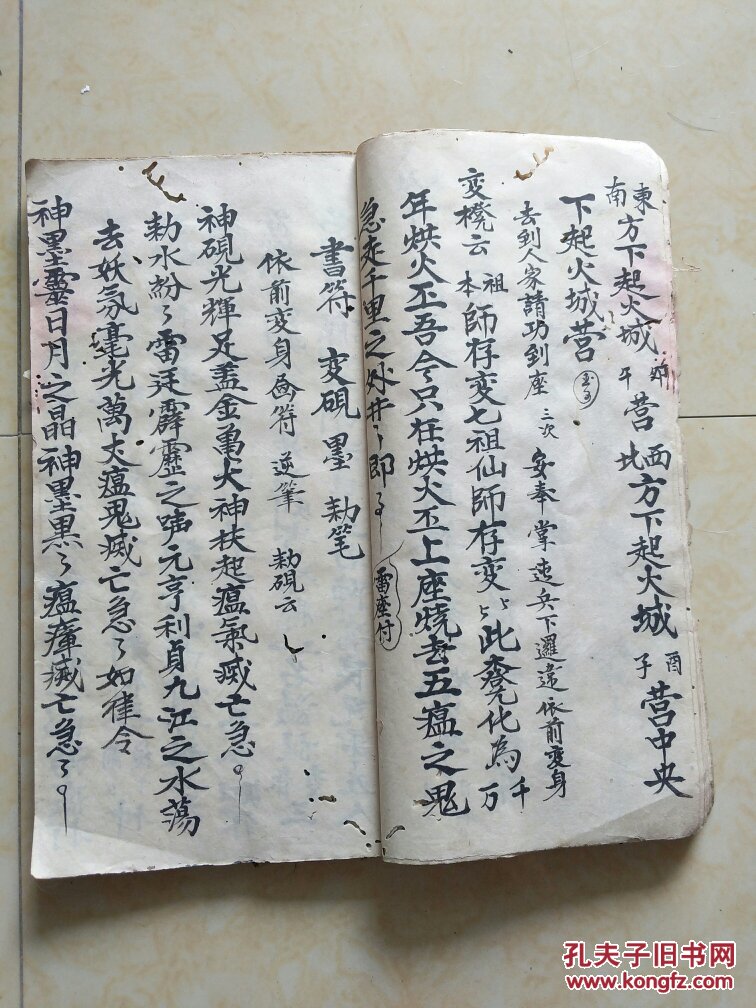 東南方下起火城 卯午 营 西北方下起火城 酉子 营中央
下起火城营
去到人家請功到座 三次 安奉掌 兵下邏 依前变身
变櫈云 祖本師存变七祖仙師存变 此櫈化為千万
年烘火丕吾今只在烘火丕上座燒去五瘟之鬼
急走千里之外井〻即 雷座付
書符 变硯 墨 勑笔
依前变身画符 逆筆 勑硯云
神硯光輝足盖金亀火神扶起瘟氣滅亡急〻
勑水紛〻雷廷霹靂之 元亨利貞九江之水蕩
去妖氛毫光萬丈瘟鬼滅亡急〻如律令
神墨靈日月之晶神墨黑〻瘟瘴滅亡急〻
孔夫子旧书网
www.kongfz.com